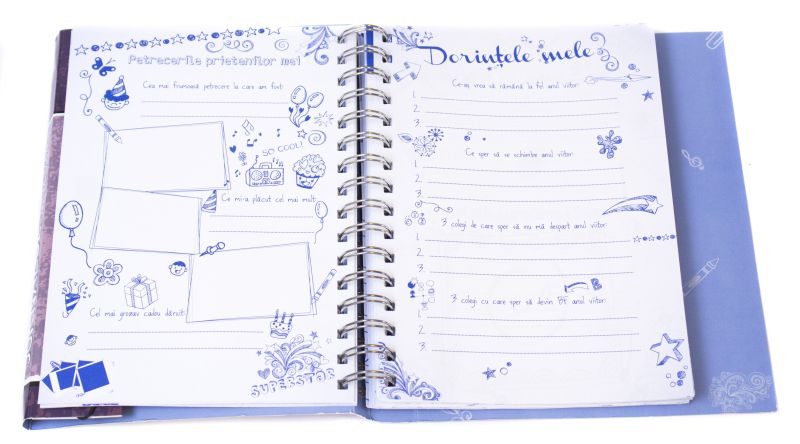 Petrecerile prietenilor mei
Cea mai frumoasă petrecere la care am fost:
SO COOL!
Ce mi-a plăcut cel mai mult:
Cel mai grozav cadou dăruit:
SUPERSTAR
Dorințele mele
Ce-aș vrea să rămână la fel anul viitor:
1.
2.
3.
Ce sper să se schimbe anul viitor:
1.
2.
3.
3 colegi de care sper să nu mă despart anul viitor:
1.
2.
3.
3 colegi cu care sper să devin BF anul viitor:
1.
2.
3.